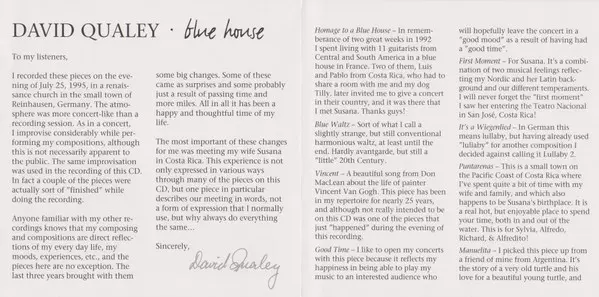 DAVID QUALEY · blue house
To my listeners,
I recorded these pieces on the eve-
ning of July 25, 1995, in a renais-
sance church in the small town of
Reinhausen, Germany. The atmo-
sphere was more concert-like than a
recording session. As in a concert,
I improvise considerably while per-
forming my compositions, although
this is not necessarily apparent to
the public. The same improvisation
was used in the recording of this CD.
In fact a couple of the pieces were
actually sort of "finished" while
doing the recording.
Anyone familiar with my other re-
cordings knows that my composing
and compositions are direct reflec-
tions of my every day life, my
moods, experiences, etc., and the
pieces here are no exception. The
last three years brought with them
some big changes. Some of these
came as surprises and some probably
just a result of passing time and
more miles. All in all it has been a
happy and thoughtful time of my
life.
The most important of these changes
for me was meeting my wife Susana
in Costa Rica. This experience is not
only expressed in various ways
through many of the pieces on this
CD, but one piece in particular
describes our meeting in words, not
a form of expression that I normally
use, but why always do everything
the same...
Sincerely,
David Qualey
Homage to a Blue House – In remem-
berance of two great weeks in 1992
I spent living with 11 guitarists from
Central and South America in a blue
house in France. Two of them, Luis
and Pablo from Costa Rica, who had to
share a room with me and my dog
Tilly, later invited me to give a concert
in their country, and it was there that
I met Susana. Thanks guys!
Blue Waltz – Sort of what I call a
slightly strange, but still conventional
harmonious waltz, at least until the
end. Hardly avantgarde, but still a
"little" 20th Century.
Vincent – A beautiful song from Don
MacLean about the life of painter
Vincent Van Gogh. This piece has been
in my repertoire for nearly 25 years,
and although not really intended to be
on this CD was one of the pieces that
just "happened" during the evening of
this recording.
Good Time – I like to open my concerts
with this piece because it reflects my
happiness in being able to play my
music to an interested audience who
will hopefully leave the concert in a
"good mood" as a result of having had
a "good time".
First Moment – For Susana. It's a combi-
nation of two musical feelings reflec-
ting my Nordic and her Latin back-
ground and our different temperaments.
I will never forget the "first moment"
I saw her entering the Teatro Nacional
in San José, Costa Rica!
It's a Wiegenlied – In German this
means lullaby, but having already used
"lullaby" for another composition I
decided against calling it Lullaby 2.
Puntarenas – This is a small town on
the Pacific Coast of Costa Rica where
I've spent quite a bit of time with my
wife and family, and which also
happens to be Susana's birthplace. It is
a real hot, but enjoyable place to spend
your time, both in and out of the
water. This is for Sylvia, Alfredo,
Richard, & Alfredito!
Manuelita – I picked this piece up from
a friend of mine from Argentina. It's
the story of a very old turtle and his
love for a beautiful young turtle, and